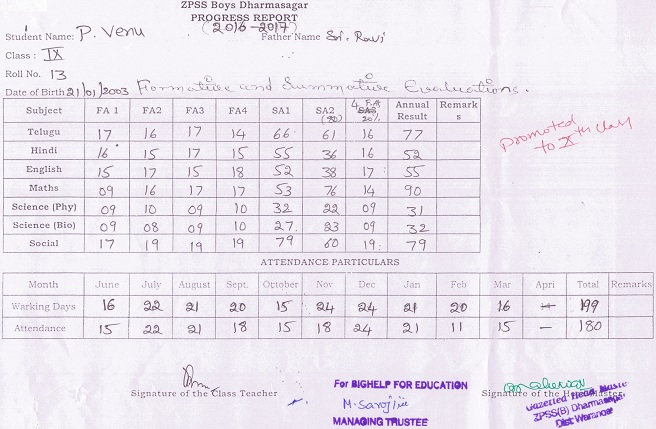 ZPSS Boys Dharmasagar
PROGRESS REPORT
(2016-2017)
Student Name: P. Venu Father Name Sri. Ravi
Class : IX
Roll No. 13
Date of Birth 21/01/2003 Formative and Summative Evaluations.
Subject FA 1 FA2 FA3 FA4 SA1 SA2 (80) 4 FA 20% Annual Result Remarks
Telugu 17 16 17 14 66 61 16 77
Hindi 16 15 17 15 55 36 16 52
English 15 17 15 18 52 38 17 55
Maths 09 16 17 17 53 76 14 90
Science (Phy) 09 10 09 10 32 22 09 31
Science (Bio) 09 08 09 10 27 23 09 32
Social 17 19 19 19 79 60 19 79
promoted
to Xth class
ATTENDANCE PARTICULARS
Month June July August Sept. October Nov Dec Jan Feb Mar Apri Total Remarks
Warking Days 16 22 21 20 15 24 24 21 20 16 — 199
Attendance 15 22 21 18 15 18 24 21 11 15 — 180
Signature of the Class Teacher
For BIGHELP FOR EDUCATION
M. Sarojini
MANAGING TRUSTEE
Signature of the Head Master
Gazetted Head Master
ZPSS(B) Dharmasagar
Dist Warangal